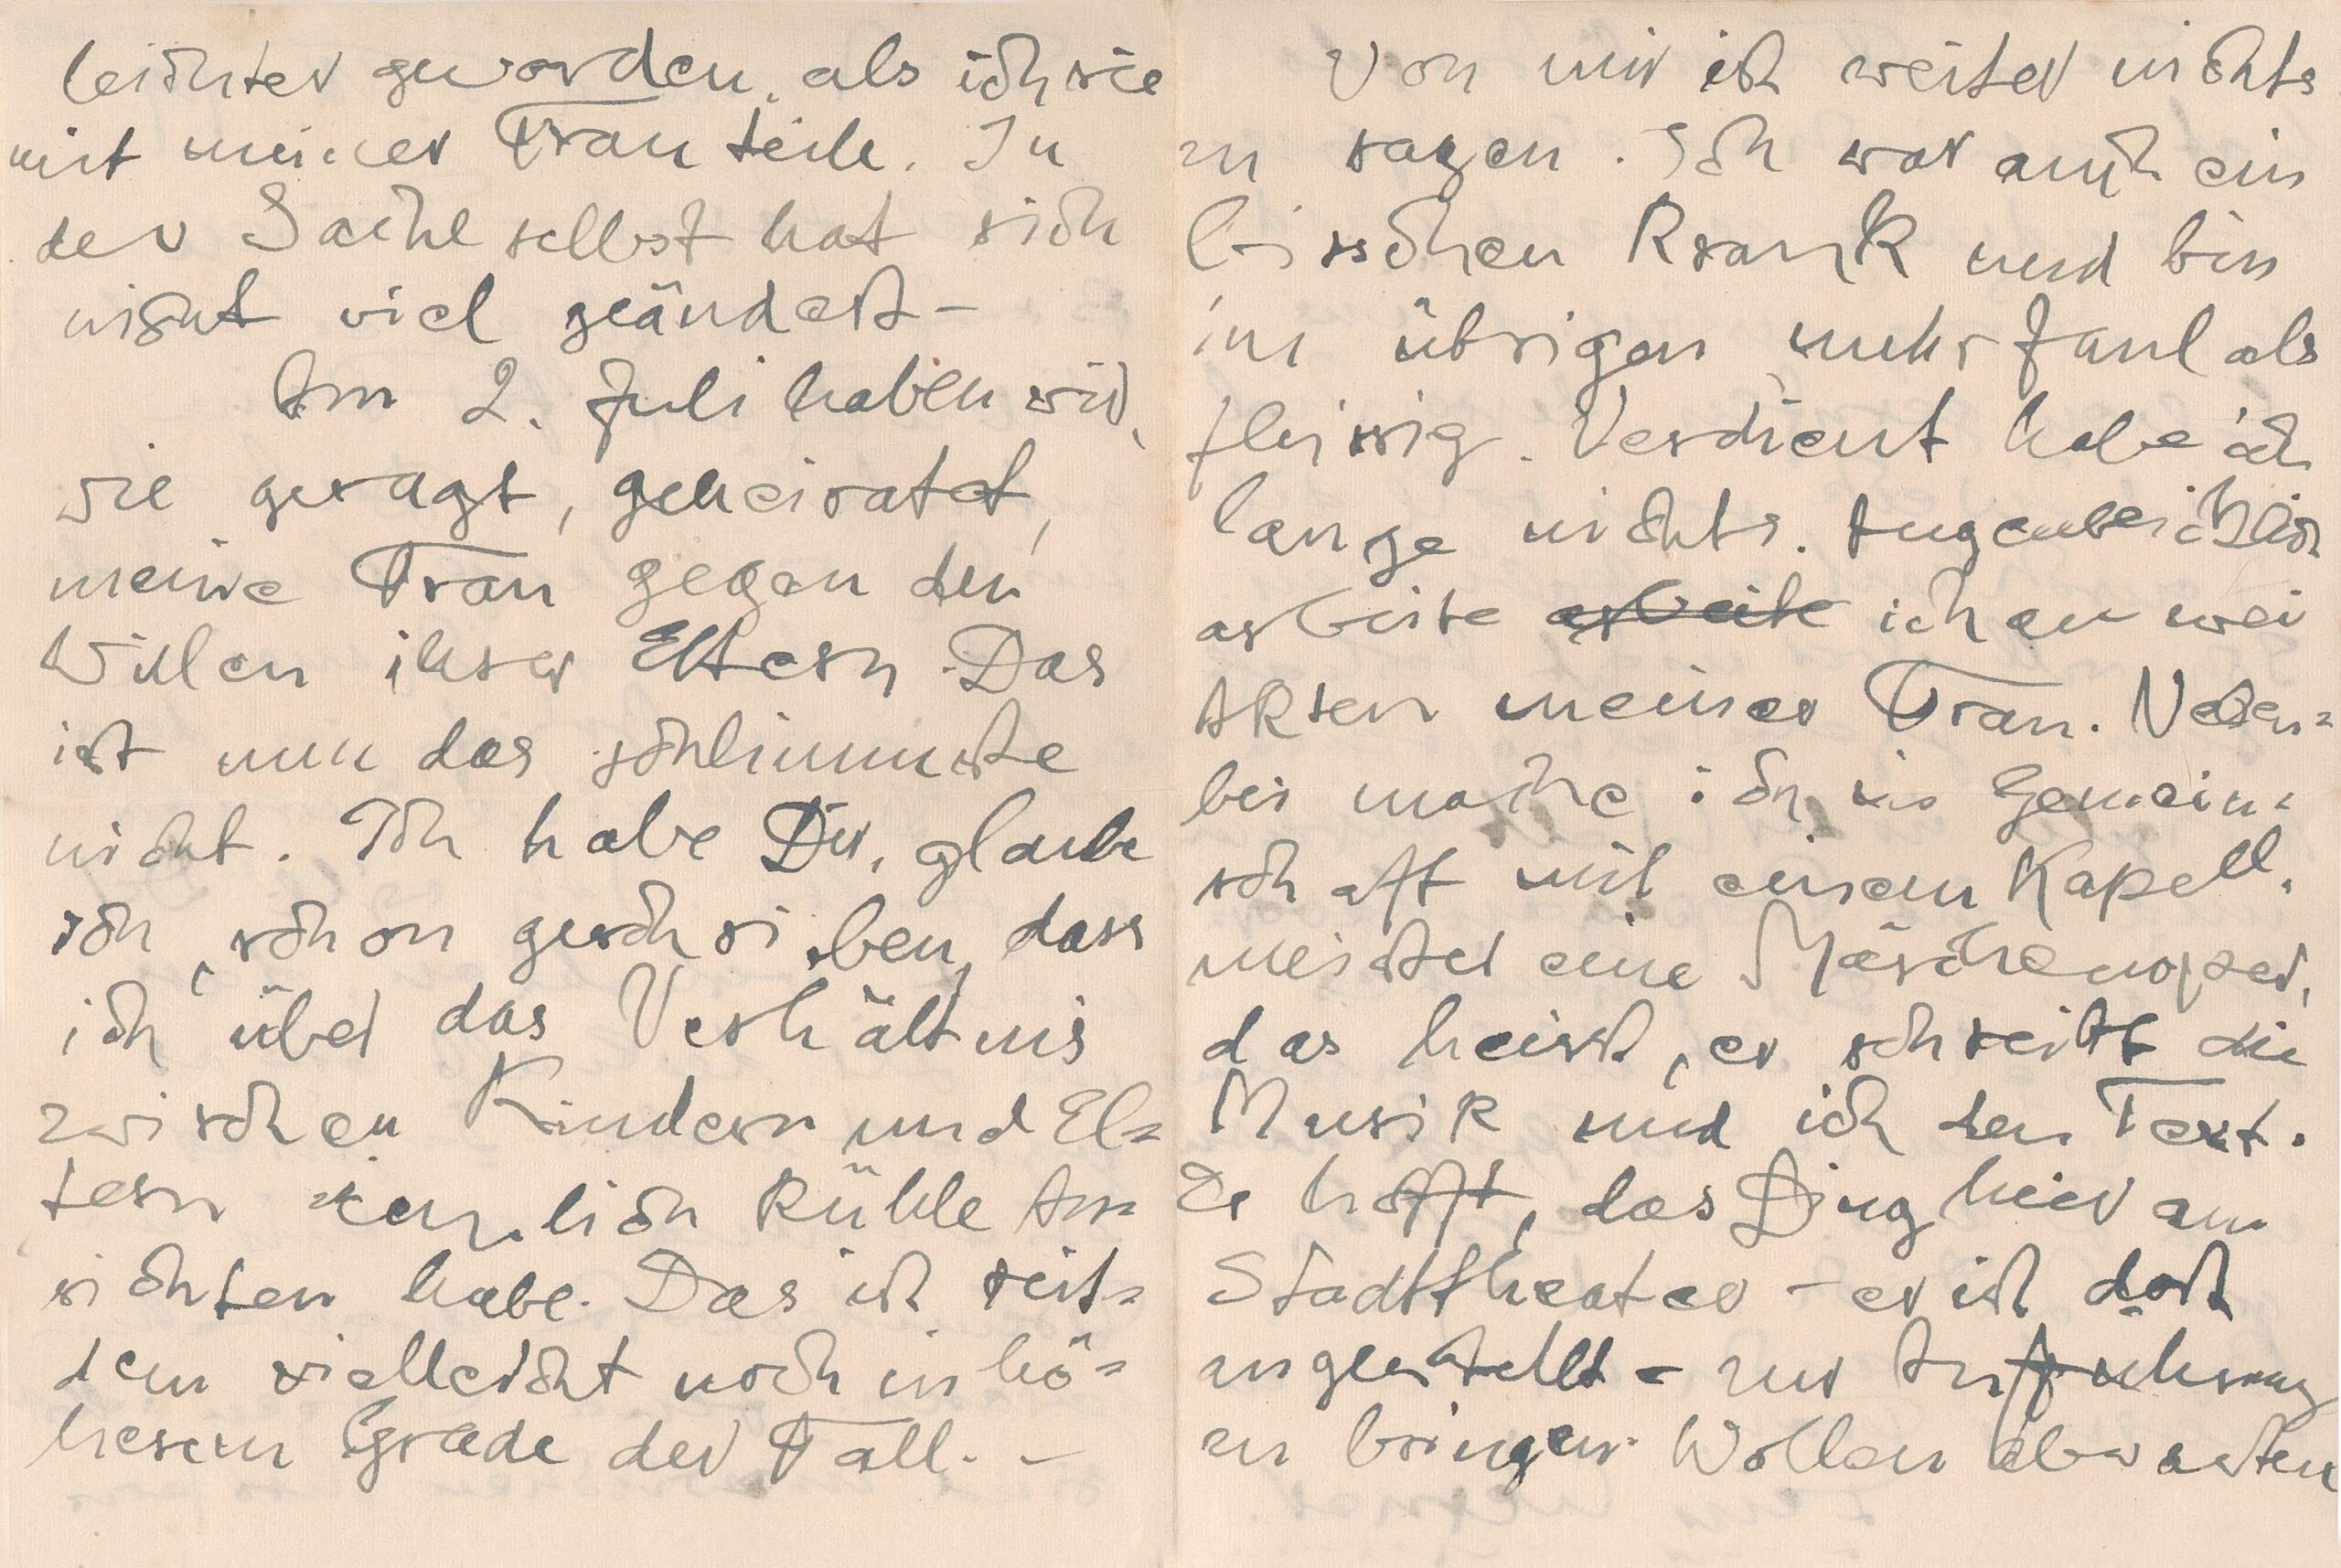 leichter geworden, als ich sie
mit meiner Frau teile. In
der Sache selbst hat sich
nicht viel geändert –
Am 2. Juli haben wir,
wie gesagt, geheiratet,
meine Frau gegen den
Willen ihrer Eltern. Das
ist nun das schlimmste
nicht. Ich habe Dir, glaube
ich, schon geschrieben, dass
ich über das Verhältnis
zwischen Kindern und El=
tern ziemlich kühle An=
sichten habe. Das ist seit=
dem vielleicht noch in hö=
herem Grade der Fall. –
Von mir ist weiter nichts
zu sagen. Ich war auch ein
bisschen krank und bin
im übrigen mehr faul als
fleissig. Verdient habe ich
lange nichts. Augenblicklich
arbeite arbeite ich an zwei
Akten meiner Frau. Neben=
bei mache ich in Gemein=
schaft mit einem Kapell=
meister eine Märchenoper,
das heisst, er schreibt die
Musik und ich den Text.
Er hofft, das Ding hier am
Stadttheater – er ist dort
angestellt – zur Aufführung
zu bringen. Wollen abwarten